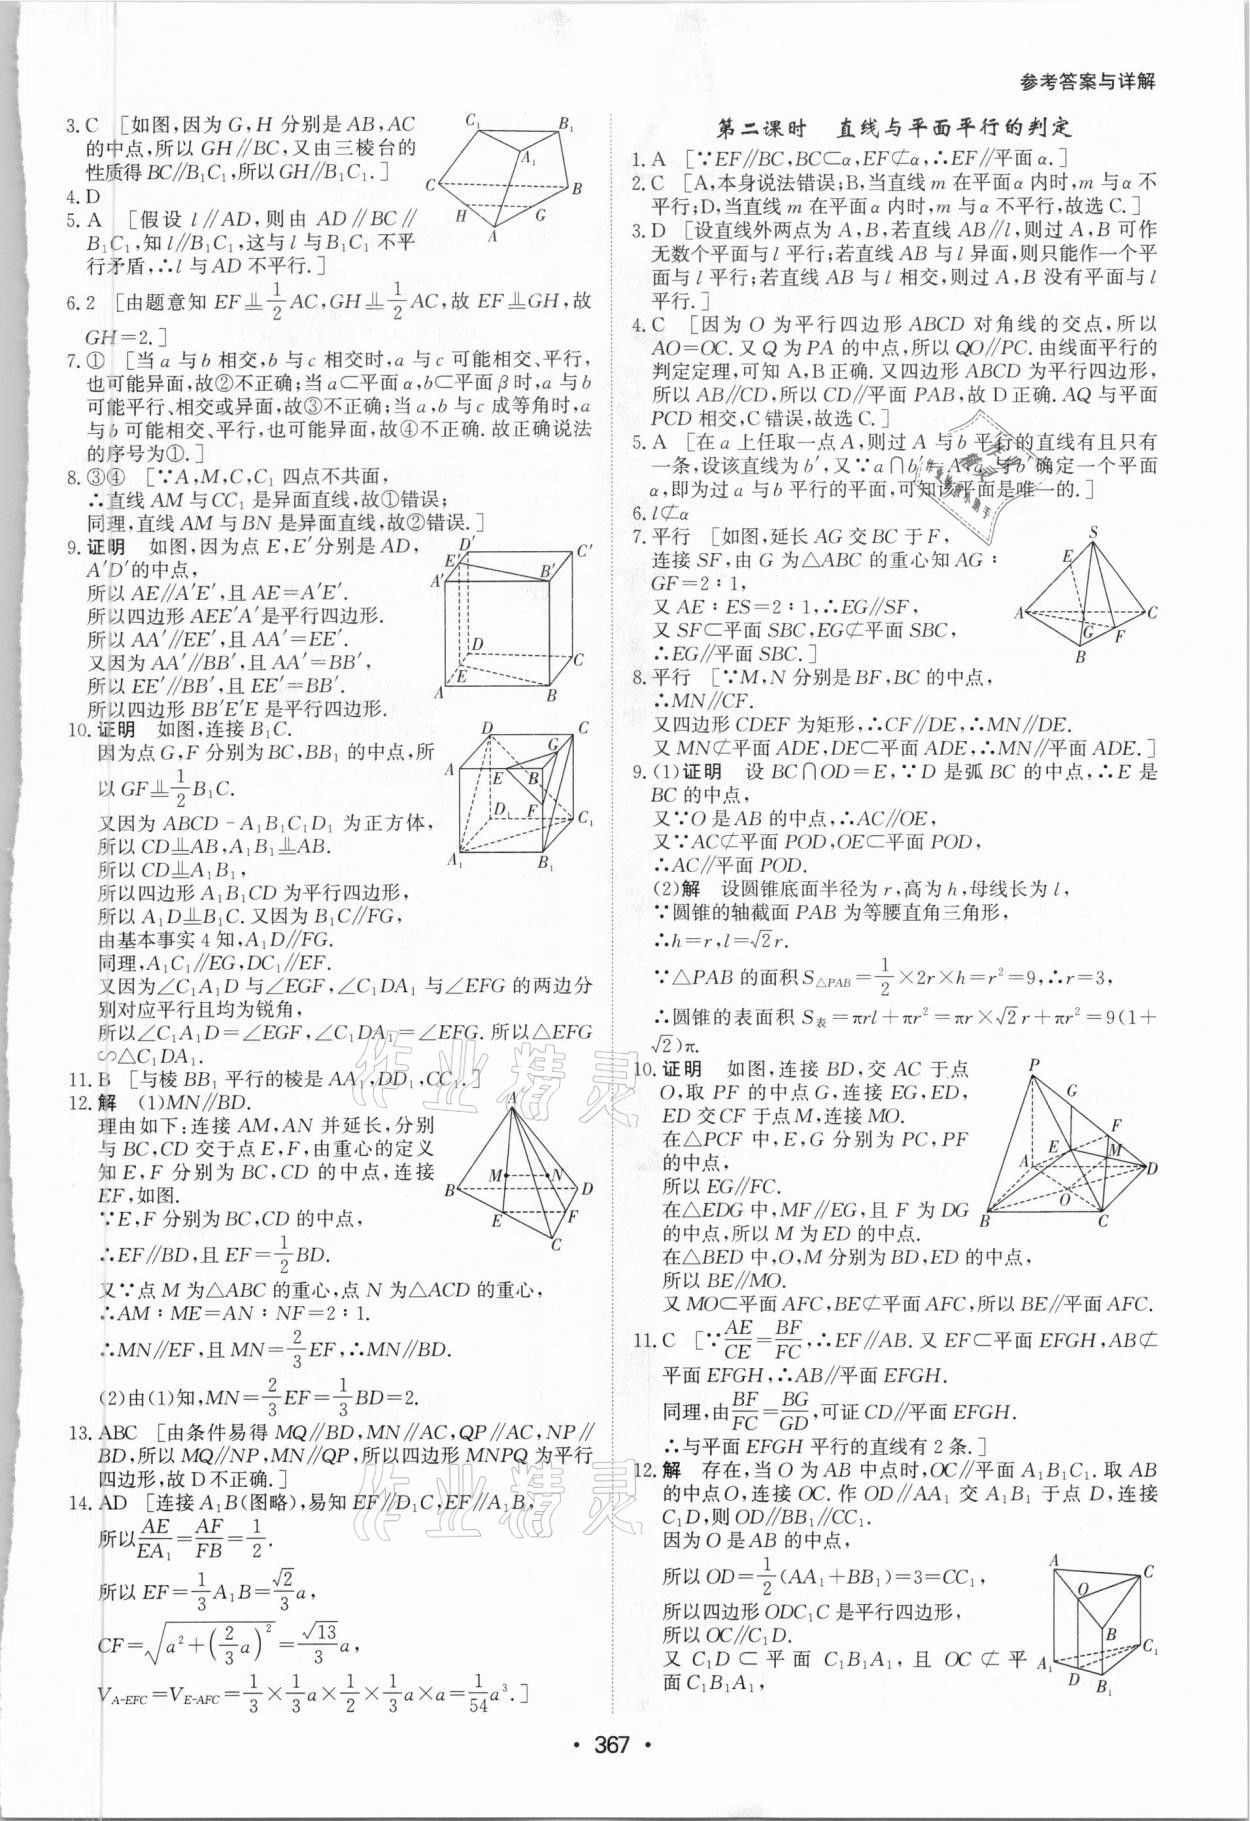 参考答案与详解
3. C [如图,因为 G,H 分别是 AB,AC
的中点,所以 GH∥BC,又由三棱台的
性质得 BC∥B₁C₁,所以 GH∥B₁C₁.]
4. D
5. A [假设 l∥AD,则由 AD∥BC∥
B₁C₁,知 l∥B₁C₁,这与 l 与 B₁C₁ 不平
行矛盾,∴l 与 AD 不平行.]
6. 2 [由题意知 EF⊥⊥1/2AC,GH⊥⊥1/2AC,故 EF⊥⊥GH,故
GH=2.]
7. ① [当 a 与 b 相交,b 与 c 相交时,a 与 c 可能相交、平行,
也可能异面,故②不正确;当 a⊂平面 α,b⊂平面 β 时,a 与 b
可能平行、相交或异面,故③不正确;当 a,b 与 c 成等角时,a
与 b 可能相交、平行,也可能异面,故④不正确.故正确说法
的序号为①.]
8. ③④ [∵A,M,C,C₁ 四点不共面,
∴直线 AM 与 CC₁ 是异面直线,故①错误;
同理,直线 AM 与 BN 是异面直线,故②错误.]
9. 证明 如图,因为点 E,E′分别是 AD,
A′D′的中点,
所以 AE∥A′E′,且 AE=A′E′.
所以四边形 AEE′A′是平行四边形.
所以 AA′∥EE′,且 AA′=EE′.
又因为 AA′∥BB′,且 AA′=BB′,
所以 EE′∥BB′,且 EE′=BB′.
所以四边形 BB′E′E 是平行四边形.
10. 证明 如图,连接 B₁C.
因为点 G,F 分别为 BC,BB₁ 的中点,所
以 GF⊥⊥1/2B₁C.
又因为 ABCD-A₁B₁C₁D₁ 为正方体,
所以 CD⊥⊥AB,A₁B₁⊥⊥AB.
所以 CD⊥⊥A₁B₁,
所以四边形 A₁B₁CD 为平行四边形,
所以 A₁D⊥⊥B₁C.又因为 B₁C∥FG,
由基本事实 4 知,A₁D∥FG.
同理,A₁C₁∥EG,DC₁∥EF.
又因为∠C₁A₁D 与∠EGF,∠C₁DA₁ 与∠EFG 的两边分
别对应平行且均为锐角,
所以∠C₁A₁D=∠EGF,∠C₁DA₁=∠EFG.所以△EFG
∽△C₁DA₁.
11. B [与棱 BB₁ 平行的棱是 AA₁,DD₁,CC₁.]
12. 解 (1)MN∥BD.
理由如下:连接 AM,AN 并延长,分别
与 BC,CD 交于点 E,F,由重心的定义
知 E,F 分别为 BC,CD 的中点,连接
EF,如图.
∵E,F 分别为 BC,CD 的中点,
∴EF∥BD,且 EF=1/2BD.
又∵点 M 为△ABC 的重心,点 N 为△ACD 的重心,
∴AM∶ME=AN∶NF=2∶1.
∴MN∥EF,且 MN=2/3EF,∴MN∥BD.
(2)由(1)知,MN=2/3EF=1/3BD=2.
13. ABC [由条件易得 MQ∥BD,MN∥AC,QP∥AC,NP∥
BD,所以 MQ∥NP,MN∥QP,所以四边形 MNPQ 为平行
四边形,故 D 不正确.]
14. AD [连接 A₁B(图略),易知 EF∥D₁C,EF∥A₁B,
所以AE/EA₁=AF/FB=1/2.
所以 EF=1/3A₁B=√2/3a,
CF=√(a²+(2/3a)²)=√13/3a,
V_A-EFC=V_E-AFC=1/3×1/3a×1/2×1/3a×a=1/54a³.]
第二课时 直线与平面平行的判定
1. A [∵EF∥BC,BC⊂α,EF⊄α,∴EF∥平面 α.]
2. C [A,本身说法错误;B,当直线 m 在平面 α 内时,m 与 α 不
平行;D,当直线 m 在平面 α 内时,m 与 α 不平行,故选 C.]
3. D [设直线外两点为 A,B,若直线 AB∥l,则过 A,B 可作
无数个平面与 l 平行;若直线 AB 与 l 异面,则只能作一个平
面与 l 平行;若直线 AB 与 l 相交,则过 A,B 没有平面与 l
平行.]
4. C [因为 O 为平行四边形 ABCD 对角线的交点,所以
AO=OC.又 Q 为 PA 的中点,所以 QO∥PC.由线面平行的
判定定理,可知 A,B 正确.又四边形 ABCD 为平行四边形,
所以 AB∥CD,所以 CD∥平面 PAB,故 D 正确.AQ 与平面
PCD 相交,C 错误,故选 C.]
5. A [在 a 上任取一点 A,则过 A 与 b 平行的直线有且只有
一条,设该直线为 b′,又∵a∩b′=A,a 与 b′确定一个平面
α,即为过 a 与 b 平行的平面,可知该平面是唯一的.]
6. l⊄α
7. 平行 [如图,延长 AG 交 BC 于 F,
连接 SF,由 G 为△ABC 的重心知 AG∶
GF=2∶1,
又 AE∶ES=2∶1,∴EG∥SF,
又 SF⊂平面 SBC,EG⊄平面 SBC,
∴EG∥平面 SBC.]
8. 平行 [∵M,N 分别是 BF,BC 的中点,
∴MN∥CF.
又四边形 CDEF 为矩形,∴CF∥DE,∴MN∥DE.
又 MN⊄平面 ADE,DE⊂平面 ADE,∴MN∥平面 ADE.]
9. (1)证明 设 BC∩OD=E,∵D 是弧 BC 的中点,∴E 是
BC 的中点,
又∵O 是 AB 的中点,∴AC∥OE,
又∵AC⊄平面 POD,OE⊂平面 POD,
∴AC∥平面 POD.
(2)解 设圆锥底面半径为 r,高为 h,母线长为 l,
∵圆锥的轴截面 PAB 为等腰直角三角形,
∴h=r,l=√2r.
∵△PAB 的面积 S△PAB=1/2×2r×h=r²=9,∴r=3,
∴圆锥的表面积 S表=πrl+πr²=πr×√2r+πr²=9(1+
√2)π.
10. 证明 如图,连接 BD,交 AC 于点
O,取 PF 的中点 G,连接 EG,ED,
ED 交 CF 于点 M,连接 MO.
在△PCF 中,E,G 分别为 PC,PF
的中点,
所以 EG∥FC.
在△EDG 中,MF∥EG,且 F 为 DG
的中点,所以 M 为 ED 的中点.
在△BED 中,O,M 分别为 BD,ED 的中点,
所以 BE∥MO.
又 MO⊂平面 AFC,BE⊄平面 AFC,所以 BE∥平面 AFC.
11. C [∵AE/CE=BF/FC,∴EF∥AB.又 EF⊂平面 EFGH,AB⊄
平面 EFGH,∴AB∥平面 EFGH.
同理,由BF/FC=BG/GD,可证 CD∥平面 EFGH.
∴与平面 EFGH 平行的直线有 2 条.]
12. 解 存在,当 O 为 AB 中点时,OC∥平面 A₁B₁C₁.取 AB
的中点 O,连接 OC.作 OD∥AA₁ 交 A₁B₁ 于点 D,连接
C₁D,则 OD∥BB₁∥CC₁.
因为 O 是 AB 的中点,
所以 OD=1/2(AA₁+BB₁)=3=CC₁,
所以四边形 ODC₁C 是平行四边形,
所以 OC∥C₁D.
又 C₁D⊂平面 C₁B₁A₁,且 OC⊄平
面 C₁B₁A₁,
作业精灵
作业精灵
• 367 •